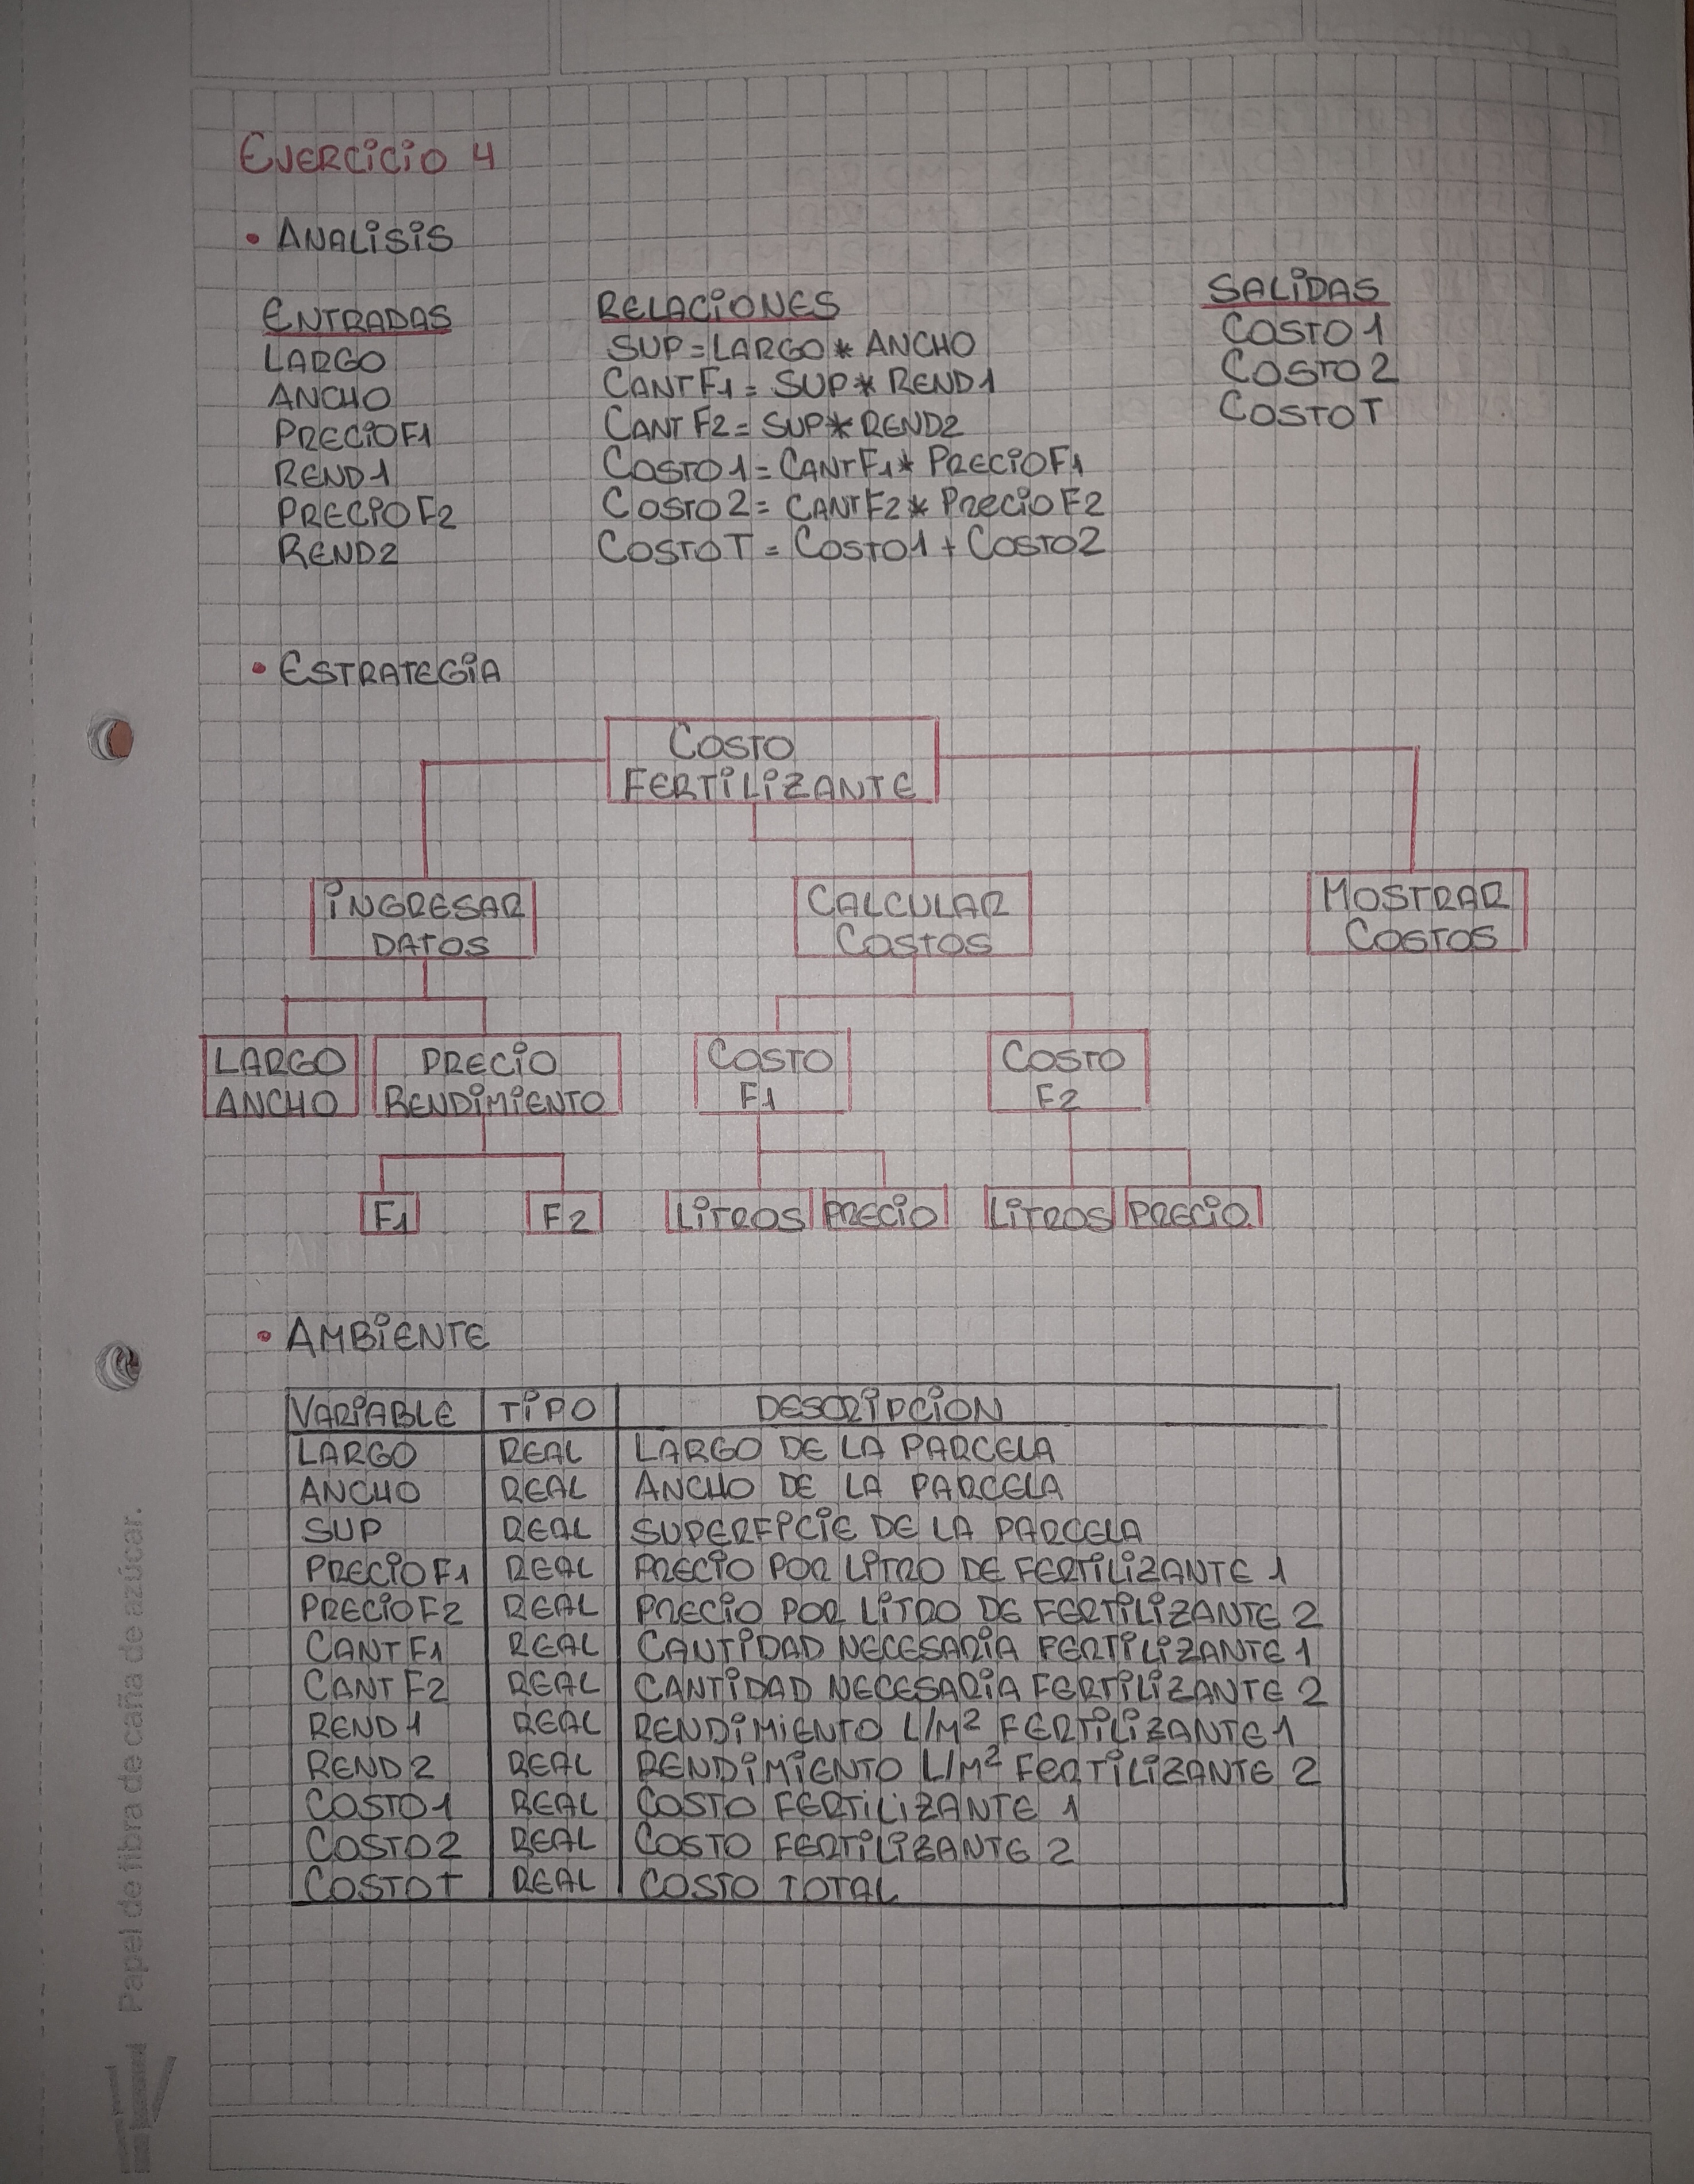 EJERCICIO 4
• ANALISIS
ENTRADAS
LARGO
ANCHO
PRECIOF1
REND1
PRECIOF2
REND2
RELACIONES
SUP=LARGO*ANCHO
CANTF1=SUP*REND1
CANTF2=SUP*REND2
COSTO1=CANTF1*PRECIOF1
COSTO2=CANTF2*PRECIOF2
COSTOT=COSTO1+COSTO2
SALIDAS
COSTO1
COSTO2
COSTOT
• ESTRATEGIA
COSTO
FERTILIZANTE
INGRESAR
DATOS
CALCULAR
COSTOS
MOSTRAR
COSTOS
LARGO
ANCHO
PRECIO
RENDIMIENTO
COSTO
F1
COSTO
F2
F1
F2
LITROS
PRECIO
LITROS
PRECIO
• AMBIENTE
VARIABLE TIPO DESCRIPCION
LARGO REAL LARGO DE LA PARCELA
ANCHO REAL ANCHO DE LA PARCELA
SUP REAL SUPERFICIE DE LA PARCELA
PRECIOF1 REAL PRECIO POR LITRO DE FERTILIZANTE 1
PRECIOF2 REAL PRECIO POR LITRO DE FERTILIZANTE 2
CANTF1 REAL CANTIDAD NECESARIA FERTILIZANTE 1
CANTF2 REAL CANTIDAD NECESARIA FERTILIZANTE 2
REND1 REAL RENDIMIENTO L/M² FERTILIZANTE 1
REND2 REAL RENDIMIENTO L/M² FERTILIZANTE 2
COSTO1 REAL COSTO FERTILIZANTE 1
COSTO2 REAL COSTO FERTILIZANTE 2
COSTOT REAL COSTO TOTAL
Papel de fibra de caña de azúcar.